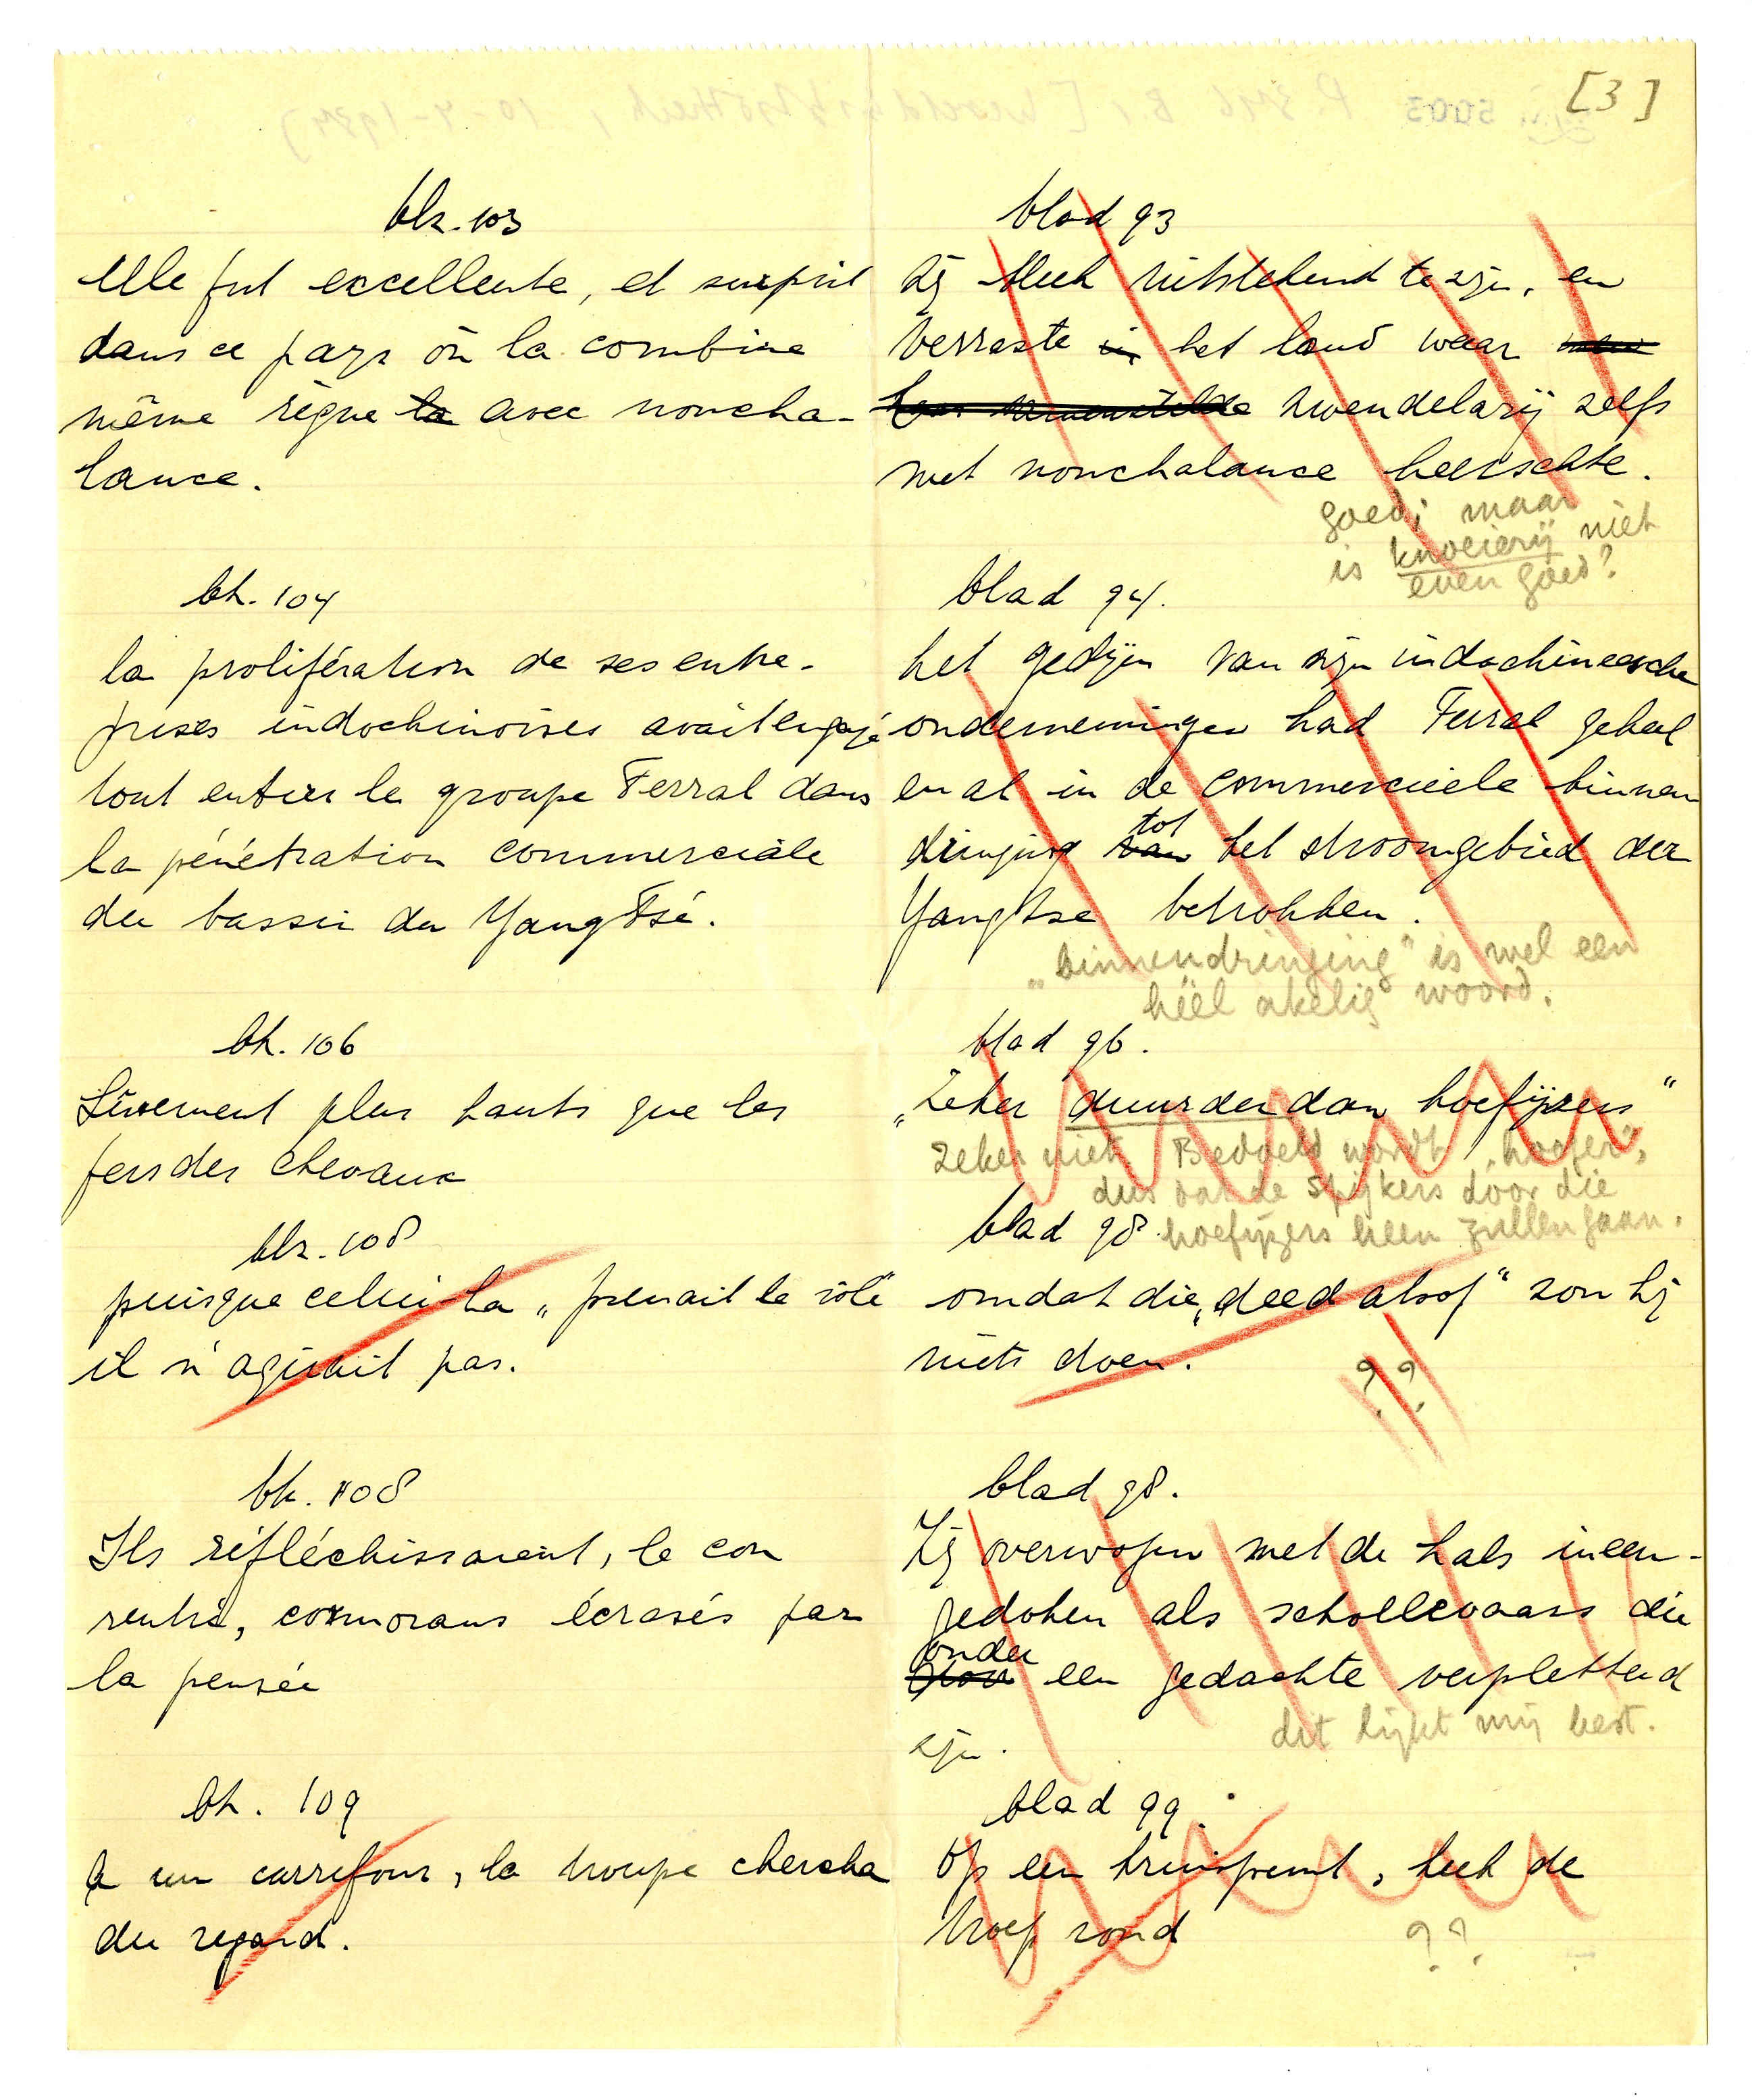 [3]
blz. 103
Elle fut excellente, et surprit
dans ce pays où la combine
même règne la avec noncha-
lance.
blad 93
Zij bleek uitstekend te zijn, en
verraste in het land waar
zwendelarij zelfs
met nonchalance heerschte.
goed; maar
is knoeierij niet
even goed?
blz. 104
la prolifération de ses entre-
prises indochinoises avait engagé
tout entier le groupe Ferral dans
la pénétration commerciale
du bassin du Yang Tsé.
blad 94.
het gedijen van zijn indochineesche
ondernemingen had Ferral geheel
en al in de commercieele binnen
dringing van tot het stroomgebied der
Yangtse betrokken.
„binnendringing" is wel een
héél akelig woord.
blz. 106
Sûrement plus hauts que les
fers des chevaux
blad 96.
„Zeker duurder dan hoefijzers"
Zeker niet Bedoeld wordt „hooger",
dus dat de spijkers door die
hoefijzers heen zullen gaan.
blz. 108
puisque celui-la „prenait le rôle"
il n'agirait pas.
blad 98.
omdat die „deed alsof" zou hij
niets doen.
??
blz. 108
Ils réfléchissaient, le cou
rentré, cormorans écrasés par
la pensée
blad 98.
Zij overwogen met de hals ineen-
gedoken als schollevaars die
onder
door een gedachte verpletterd
zijn.
dit lijkt mij best.
blz. 109
A un carrefour, la troupe chercha
du regard.
blad 99.
Op een kruispunt, keek de
troep rond
??